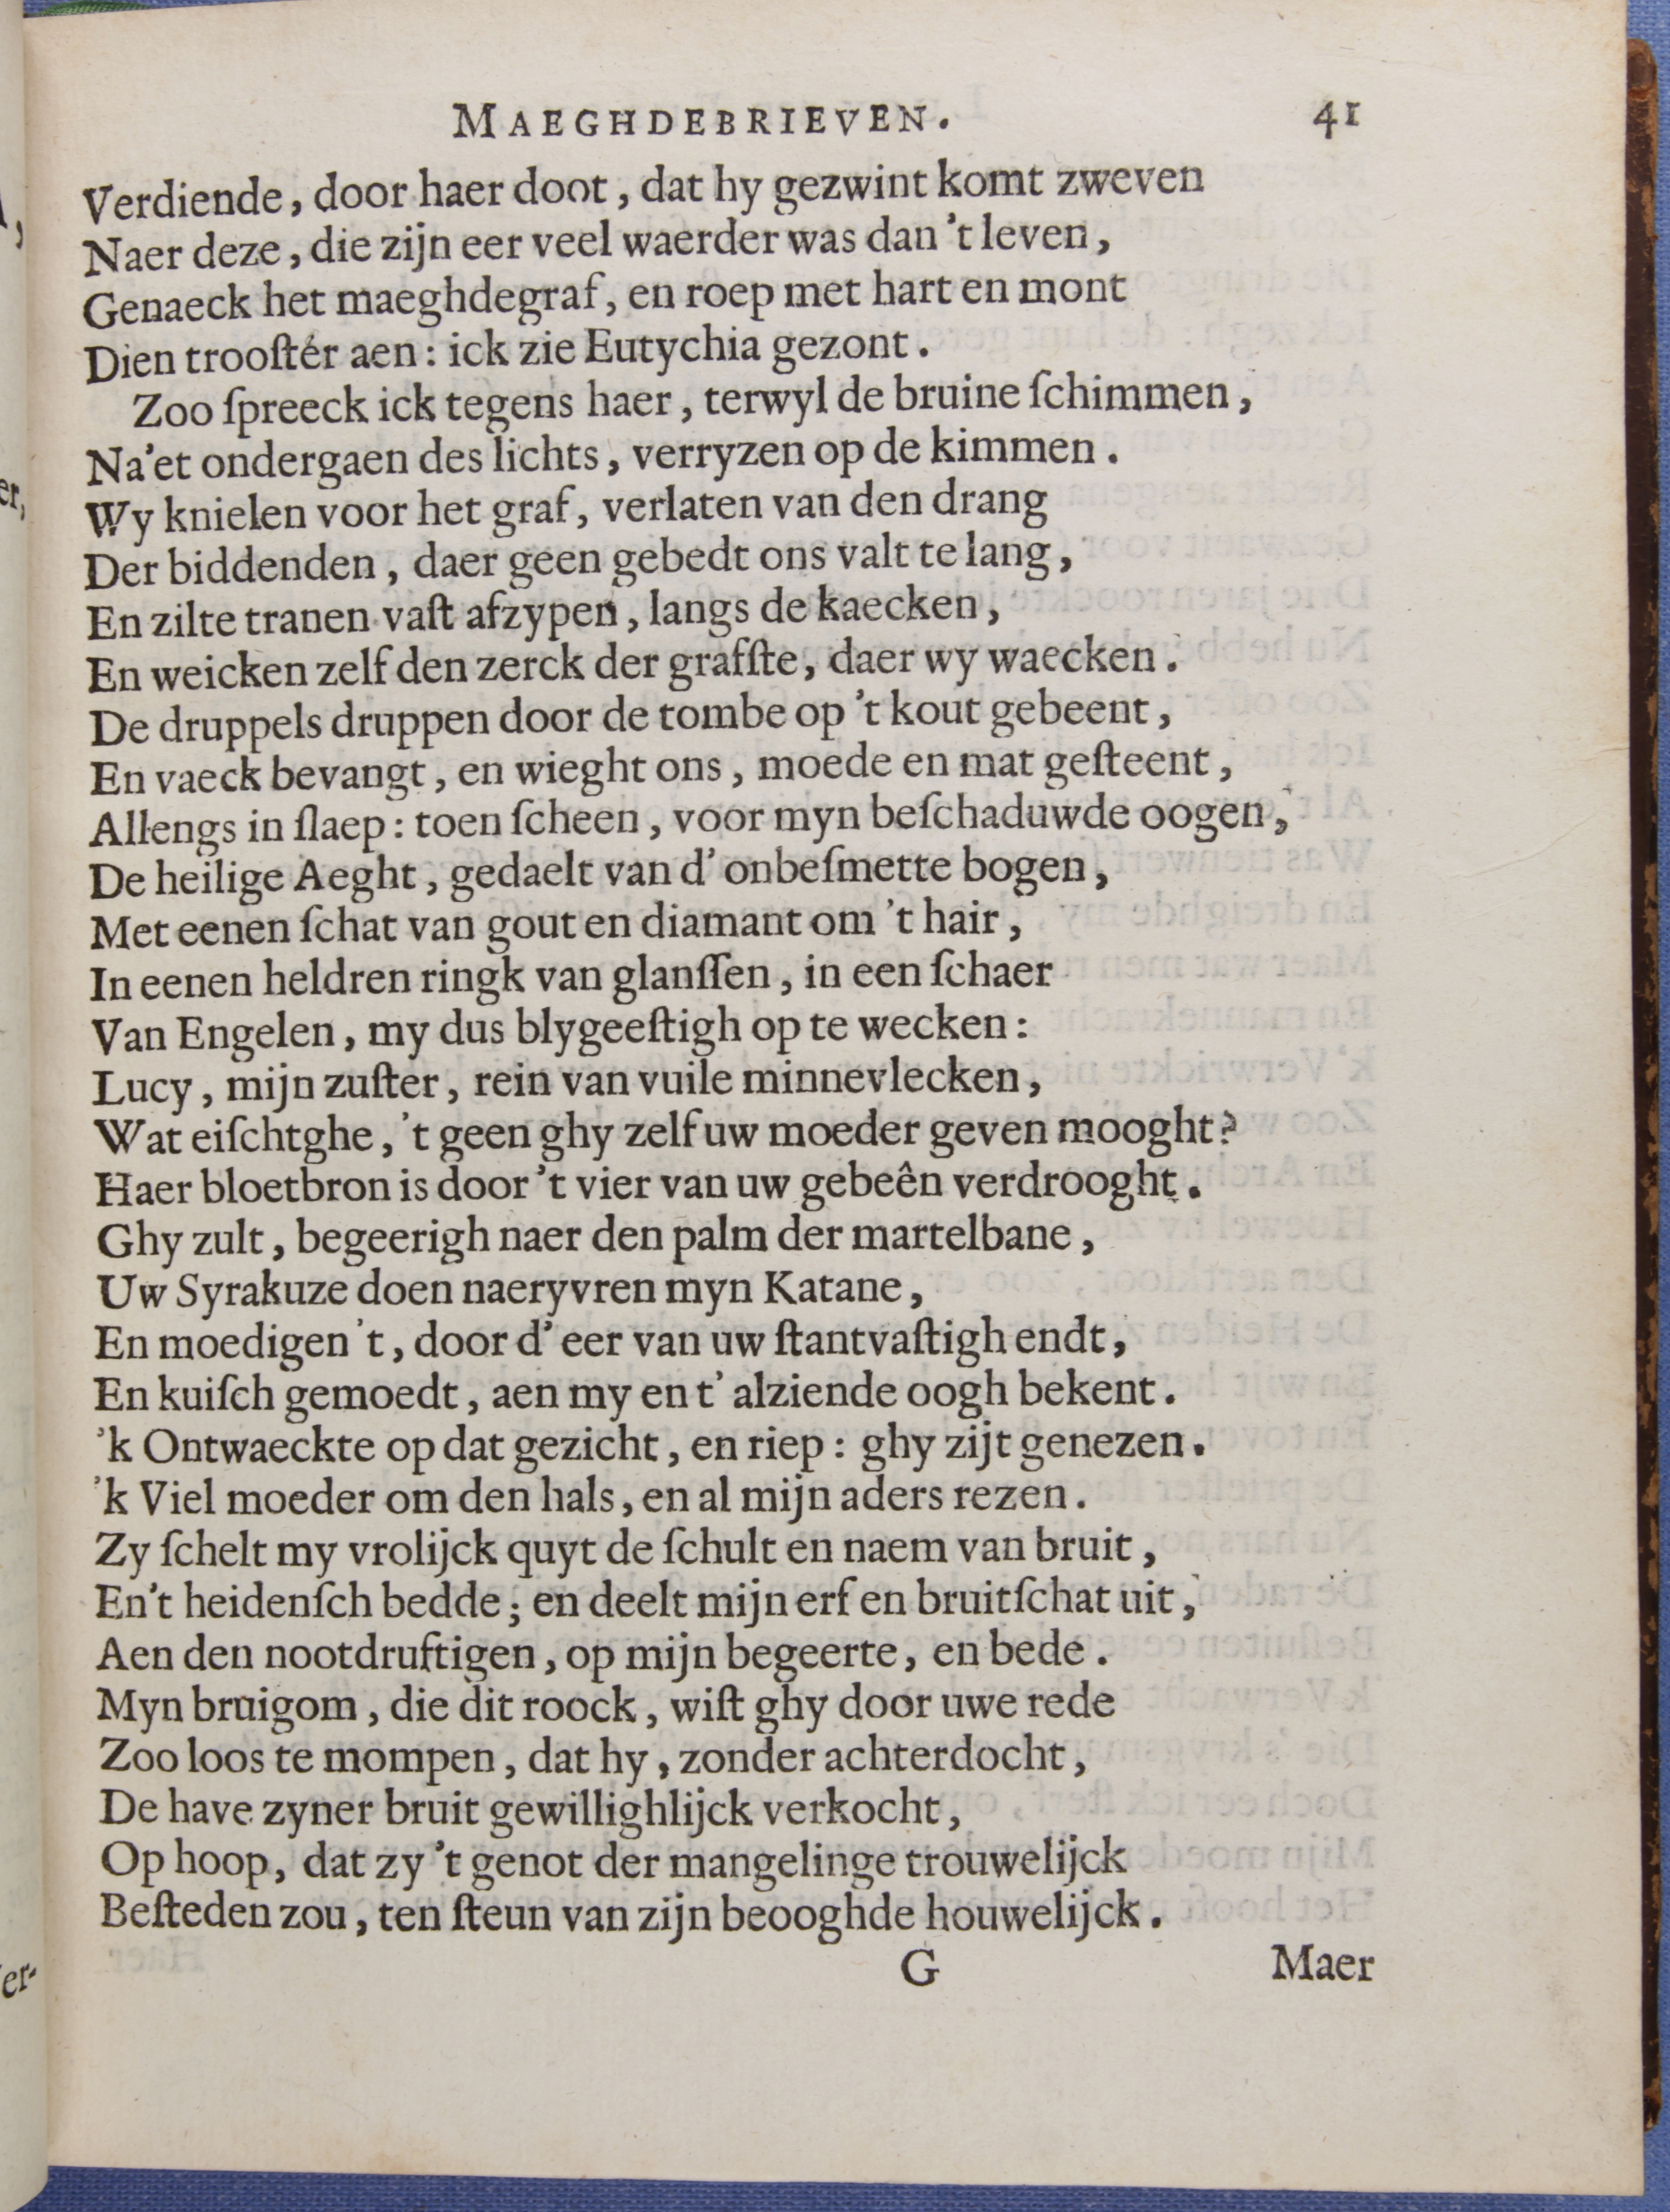 MAEGHDEBRIEVEN. 41
Verdiende, door haer doot, dat hy gezwint komt zweven
Naer deze, die zijn eer veel waerder was dan 't leven,
Genaeck het maeghdegraf, en roep met hart en mont
Dien trooſtér aen: ick zie Eutychia gezont.
Zoo ſpreeck ick tegens haer, terwyl de bruine ſchimmen,
Na'et ondergaen des lichts, verryzen op de kimmen.
Wy knielen voor het graf, verlaten van den drang
Der biddenden, daer geen gebedt ons valt te lang,
En zilte tranen vaſt afzypen, langs de kaecken,
En weicken zelf den zerck der grafſte, daer wy waecken.
De druppels druppen door de tombe op 't kout gebeent,
En vaeck bevangt, en wieght ons, moede en mat geſteent,
Allengs in ſlaep: toen ſcheen, voor myn beſchaduwde oogen,
De heilige Aeght, gedaelt van d' onbeſmette bogen,
Met eenen ſchat van gout en diamant om 't hair,
In eenen heldren ringk van glanſſen, in een ſchaer
Van Engelen, my dus blygeeſtigh op te wecken:
Lucy, mijn zuſter, rein van vuile minnevlecken,
Wat eiſchtghe, 't geen ghy zelf uw moeder geven mooght?
Haer bloetbron is door 't vier van uw gebeên verdrooght.
Ghy zult, begeerigh naer den palm der martelbane,
Uw Syrakuze doen naeryvren myn Katane,
En moedigen 't, door d' eer van uw ſtantvaſtigh endt,
En kuiſch gemoedt, aen my en t' alziende oogh bekent.
'k Ontwaeckte op dat gezicht, en riep: ghy zijt genezen.
'k Viel moeder om den hals, en al mijn aders rezen.
Zy ſchelt my vrolijck quyt de ſchult en naem van bruit,
En't heidenſch bedde; en deelt mijn erf en bruitſchat uit,
Aen den nootdruftigen, op mijn begeerte, en bede.
Myn bruigom, die dit roock, wiſt ghy door uwe rede
Zoo loos te mompen, dat hy, zonder achterdocht,
De have zyner bruit gewillighlijck verkocht,
Op hoop, dat zy 't genot der mangelinge trouwelijck
Beſteden zou, ten ſteun van zijn beooghde houwelijck.
G Maer